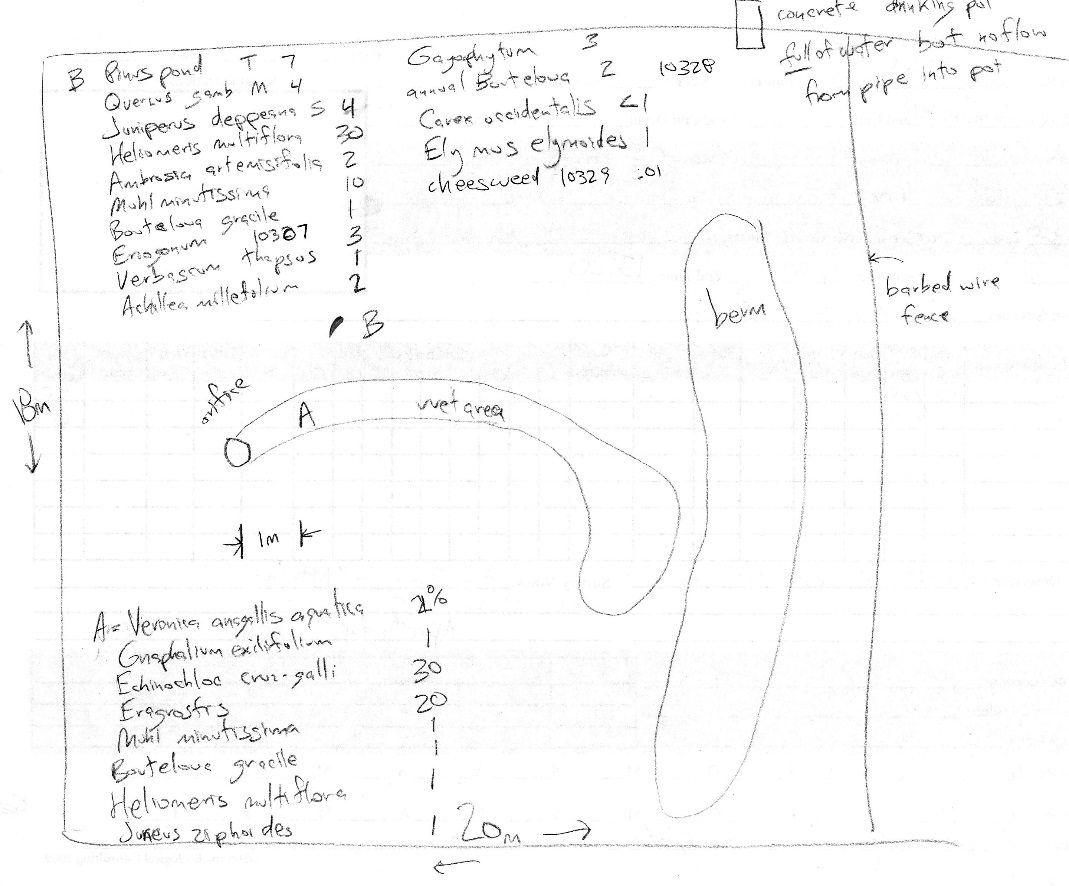 concrete drinking pot
full of water but no flow
from pipe into pot
B Pinus pond T 7
Quercus gamb M 4
Juniperus deppeana S 4
Heliomeris multiflora 30
Ambrosia artemisifolia 2
Muhl minutissima 10
Bouteloua gracile 1
Eriogonum 10307 3
Verbascum thapsus 1
Achillea millefolium 2
Gayophytum 3
annual Bouteloua 2 10328
Carex occidentalis <1
Elymus elymoides 1
cheeseweed 10329 .01
berm
barbed wire
fence
B
18m
orifice
A
wet area
1m
A = Veronica anagallis aquatica 1%
Gnaphalium exilifolium 1
Echinochloa crus-galli 30
Eragrostis 20
Muhl minutissima 1
Bouteloua gracile 1
Heliomeris multiflora 1
Juncus xiphoides 1
20m